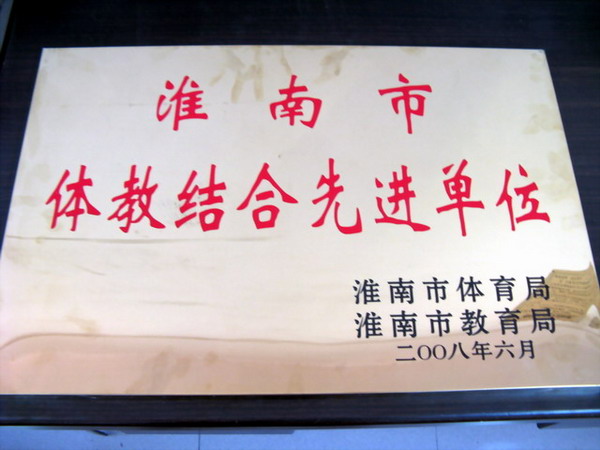 淮南市
体教结合先进单位
淮南市体育局
淮南市教育局
二OO八年六月